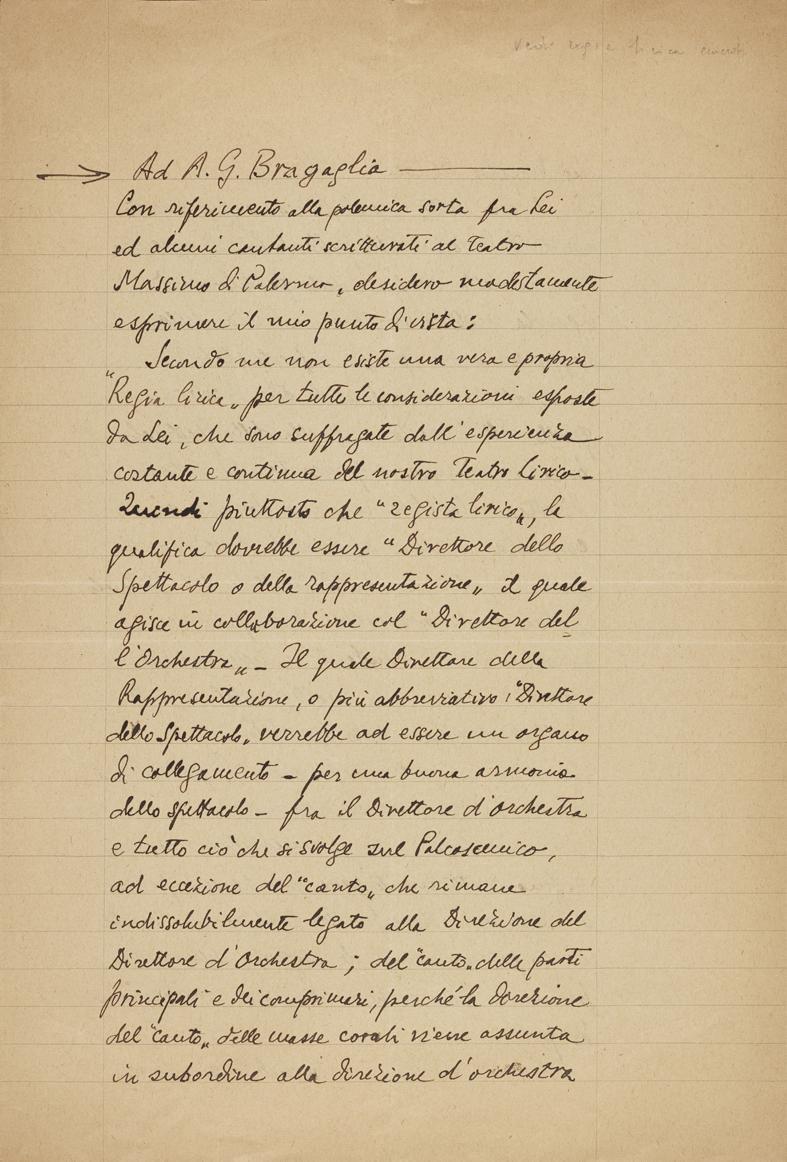 Ad A. G. Bragaglia
Con riferimento alla polemica sorta fra Lei
ed alcuni cantanti scritturati al Teatro
Massimo di Palermo, desidero modestamente
esprimere il mio punto di vista:
Secondo me non esiste una vera e propria
"Regia lirica„ per tutte le considerazioni esposte
da Lei, che sono suffragate dall'esperienza
costante e continua del nostro Teatro Lirico –
Quindi piuttosto che "regista lirico„, la
qualifica dovrebbe essere "Direttore dello
Spettacolo o della rappresentazione„ il quale
agisce in collaborazione col "Direttore del
l'Orchestra„ – Il quale Direttore della
Rappresentazione, o più abbreviativo: "Direttore
dello Spettacolo„ verrebbe ad essere un organo
di collegamento – per una buona armonia
dello spettacolo – fra il Direttore d'Orchestra
e tutto ciò che si svolge sul Palcoscenico,
ad eccezione del "canto„ che rimane
indissolubilmente legato alla Direzione del
Direttore d'Orchestra; del "canto„ delle parti
principali e dei comprimari, perché la direzione
del "canto„ delle masse corali viene assunta
in subordine alla direzione d'orchestra